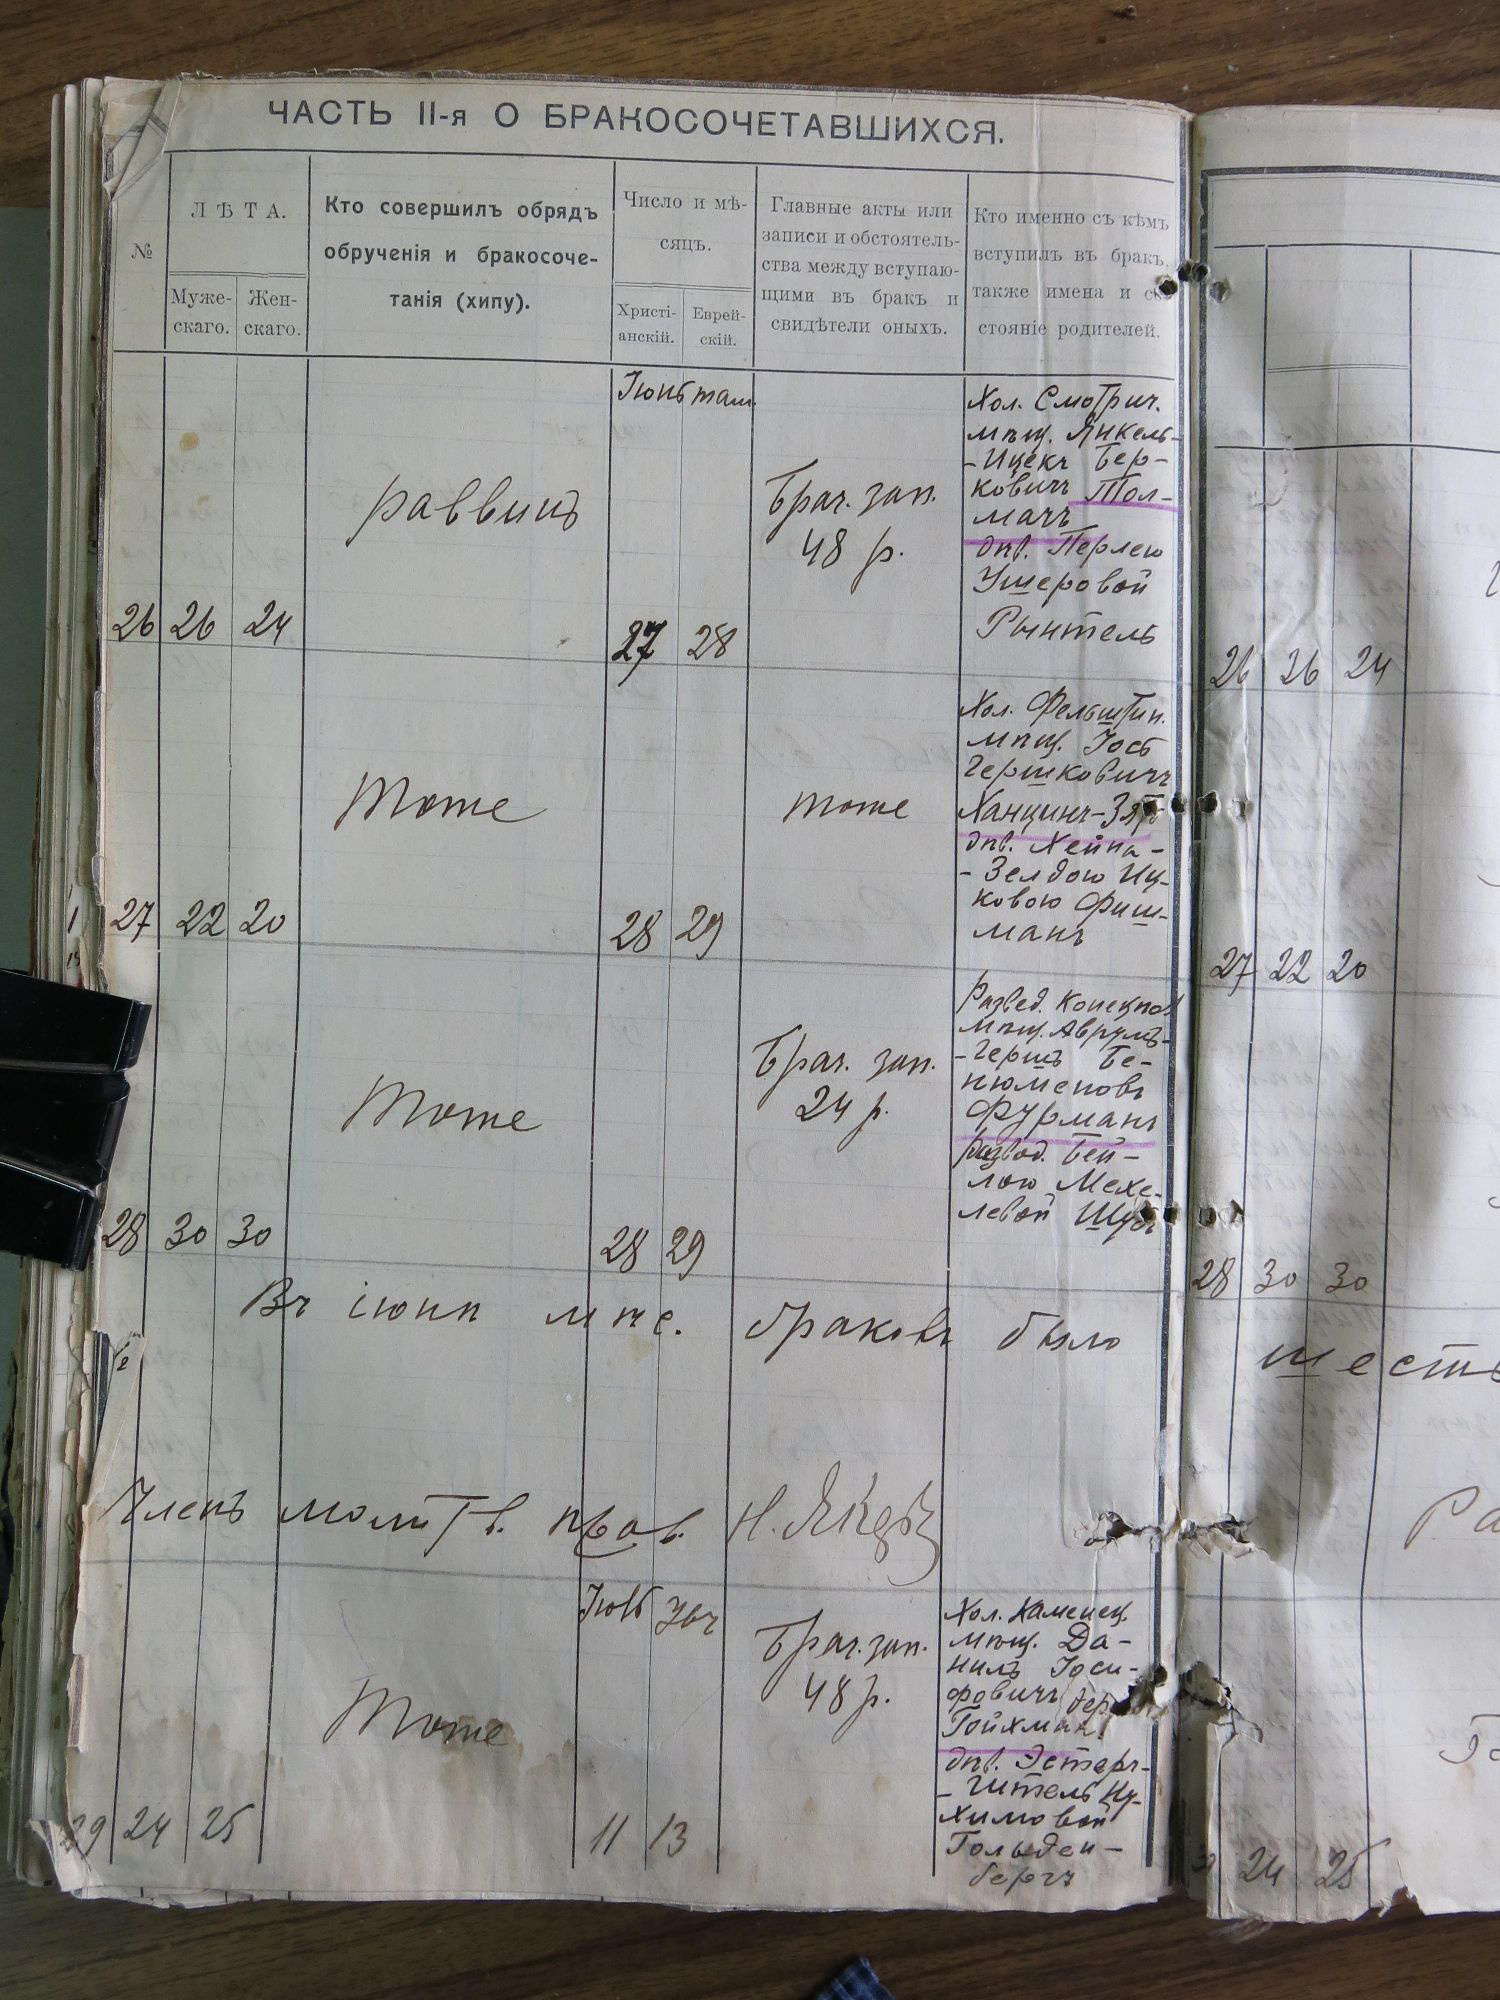 ЧАСТЬ II-я О БРАКОСОЧЕТАВШИХСЯ.
№
ЛѢТА.
Муже-
скаго.
Жен-
скаго.
Кто совершилъ обрядъ
обрученія и бракосоче-
танія (хипу).
Число и мѣ-
сяцъ.
Христі-
анскій.
Еврей-
скій.
Главные акты или
записи и обстоятель-
ства между вступаю-
щими въ бракъ и
свидѣтели оныхъ.
Кто именно съ кѣмъ
вступилъ въ бракъ,
также имена и со-
стояніе родителей.
26 26 24
раввинъ
Іюнь там.
27 28
Брач. зап.
48 р.
Хол. Смотрич.
мѣщ. Янкель-
-Ицекъ Бер-
ковичъ Тол-
мачъ
дѣв. Перлею
Ушеровой
Рынтель
27 22 20
Тоже
28 29
тоже
Хол. Фельштин.
мѣщ. Іось
Гершковичъ
Ханцинъ-Зять
дѣв. Хейна-
-Зелдою Иц-
ковою Фиш-
манъ
28 30 30
Тоже
28 29
Брач. зап.
24 р.
Развед.
мѣщ. Аврумъ-
-Гершъ Бе-
нюменовъ
Фурманъ
развод. Бей-
лою Мехе-
левой Шубъ
Въ іюнѣ мѣс. браковъ было
Членъ молитв. прав. Н.
29 24 25
Тоже
Іюль
11 13
Брач. зап.
48 р.
Хол. Каменец.
мѣщ. Да-
нилъ Іоси-
фовичъ
Гойхман
дѣв. Эстеръ-
-Гитель Ну-
химовой
Гольден-
бергъ
26 26 24
27 22 20
28 30 30
шесть
Ра
24 25